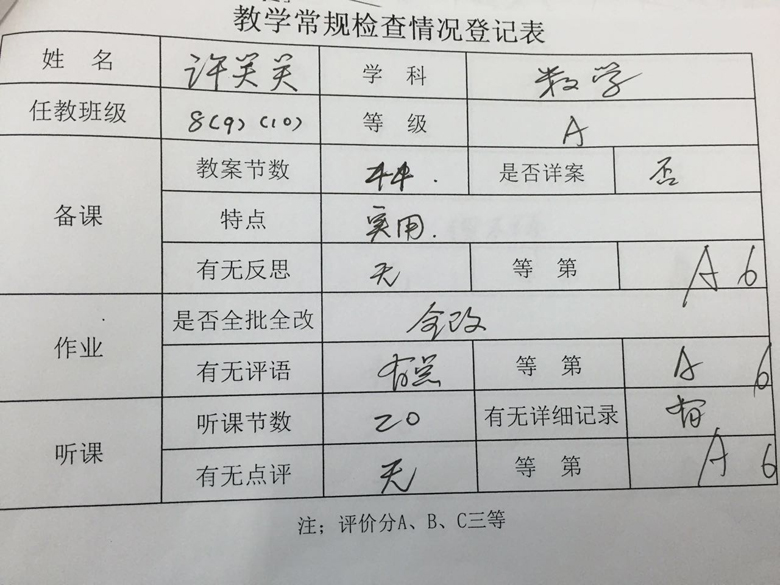 教学常规检查情况登记表
姓 名 许关关 学 科 数学
任教班级 8(9)(10) 等 级 A
备课 教案节数 44. 是否详案 否
特点 实用.
有无反思 无 等 第 A 6
作业 是否全批全改 全改
有无评语 有 等 第 A 6
听课 听课节数 20 有无详细记录 有
有无点评 无 等 第 A 6
注; 评价分A、B、C三等